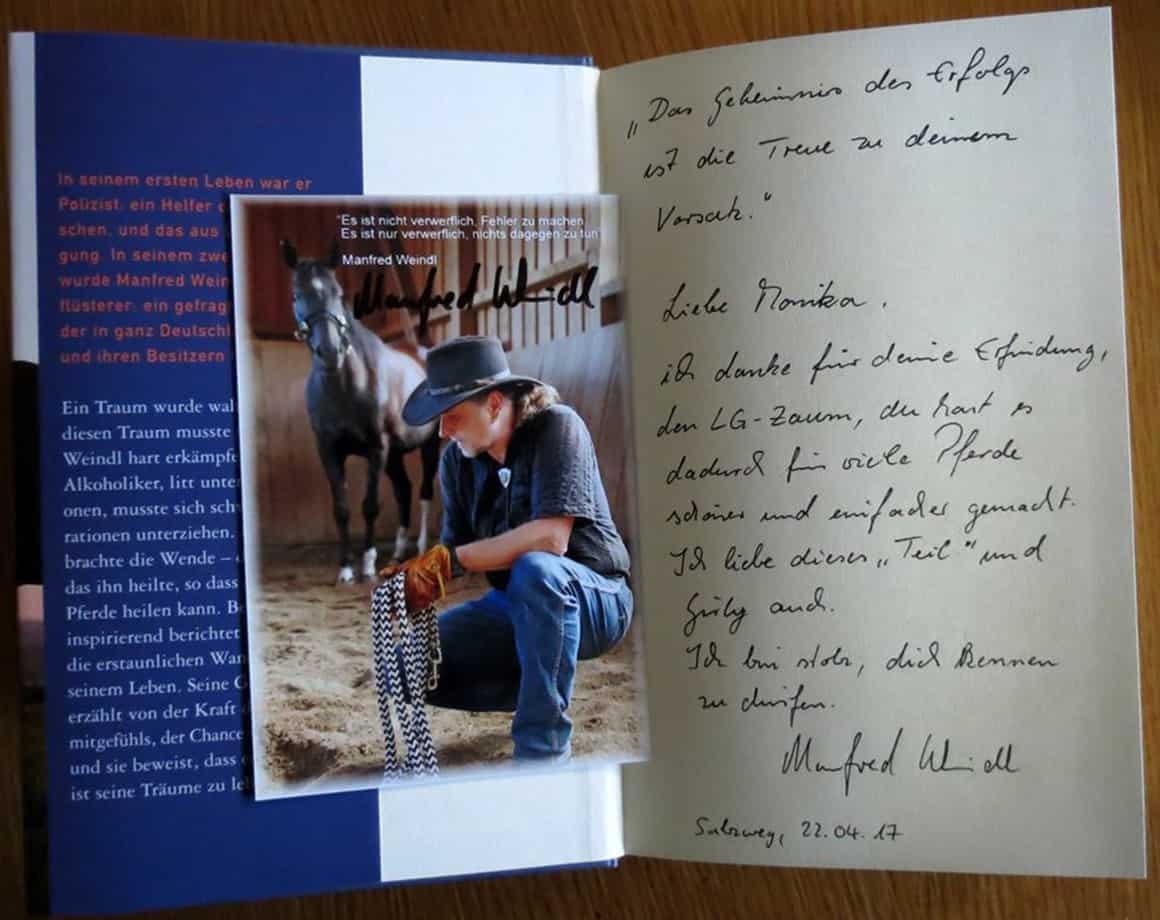 In seinem ersten Leben war er
Polizist: ein Helfer
schen, und das aus
gung. In seinem zwe
wurde Manfred Wein
flüsterer: ein gefrag
der in ganz Deutschl
und ihren Besitzern
Ein Traum wurde wah
diesen Traum musste
Weindl hart erkämpfe
Alkoholiker, litt unter
onen, musste sich sch
rationen unterziehen.
brachte die Wende –
das ihn heilte, so dass
Pferde heilen kann. B
inspirierend berichtet
die erstaunlichen Wan
seinem Leben. Seine G
erzählt von der Kraft
mitgefühls, der Chance
und sie beweist, dass
ist seine Träume zu le
"Es ist nicht verwerflich, Fehler zu machen,
Es ist nur verwerflich, nichts dagegen zu tun
Manfred Weindl
Manfred Weindl
„Das Geheimnis des Erfolgs
ist die Treue zu deinem
Vorsatz."
Liebe Monika,
ich danke für deine Erfindung,
den LG-Zaum, du hast es
dadurch für viele Pferde
schöner und einfacher gemacht.
Ich liebe dieses „Teil" und
auch.
Ich bin stolz, dich kennen
zu dürfen.
Manfred Weindl
Salzweg, 22.04.17